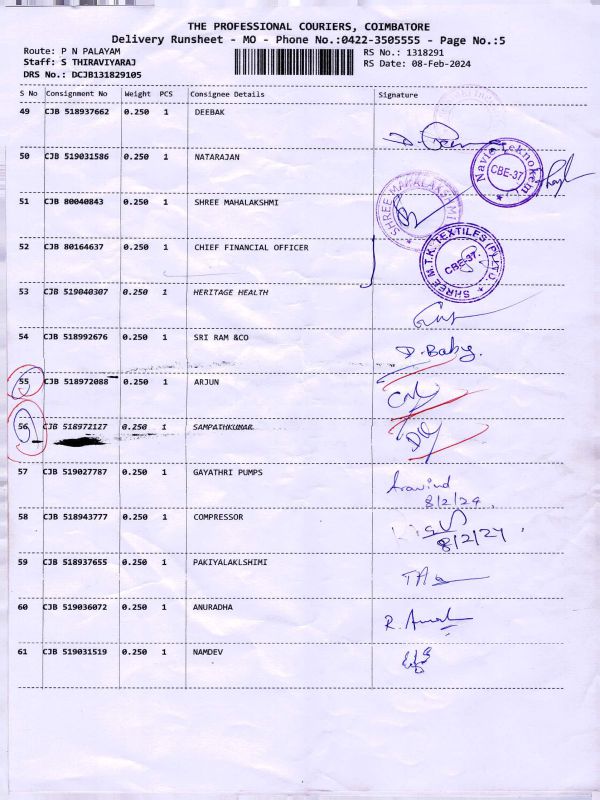 THE PROFESSIONAL COURIERS, COIMBATORE
Delivery Runsheet - MO - Phone No.:0422-3505555 - Page No.:5
Route: P N PALAYAM
RS No.: 1318291
Staff: S THIRAVIYARAJ
RS Date: 08-Feb-2024
DRS No.: DCJB131829105
S No Consignment No Weight PCS Consignee Details Signature
49 CJB 518937662 0.250 1 DEEBAK
50 CJB 519031586 0.250 1 NATARAJAN
Navia Teknokem CBE-37
51 CJB 80040843 0.250 1 SHREE MAHALAKSHMI
SHREE MAHALAKSHMI
52 CJB 80164637 0.250 1 CHIEF FINANCIAL OFFICER
SHREE M.T.K. TEXTILES (P) LTD. CBE-37.
53 CJB 519040307 0.250 1 HERITAGE HEALTH
54 CJB 518992676 0.250 1 SRI RAM &CO
D. Baby.
55 CJB 518972088 0.250 1 ARJUN
56 CJB 518972127 0.250 1 SAMPATHKUMAR
57 CJB 519027787 0.250 1 GAYATHRI PUMPS
Aravind
8/2/24.
58 CJB 518943777 0.250 1 COMPRESSOR
8/2/24
59 CJB 518937655 0.250 1 PAKIYALAKLSHIMI
60 CJB 519036072 0.250 1 ANURADHA
61 CJB 519031519 0.250 1 NAMDEV